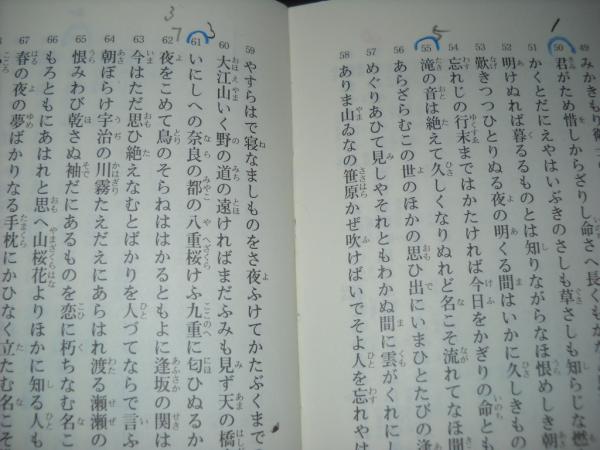 1
5
49 かきもり衛
50 君がため惜しからざりし命さへ長くもが
51 かくとだにえやはいぶきのさしも草さしも知らじな燃
52 明けぬれば暮るるものとは知りながらなほ恨めしき朝
53 歎きつつひとりぬる夜の明くる間はいかに久しきもの
54 忘れじの行末まではかたければ今日をかぎりの命とも
55 滝の音は絶えて久しくなりぬれど名こそ流れてなほ聞
56 あらざらむこの世のほかの思ひ出にいまひとたびの逢
57 めぐりあひて見しやそれともわかぬ間に雲がくれにし
58 ありま山ゐなの笹原かぜ吹けばいでそよ人を忘れやは
3
7 3
59 やすらはで寝なましものをさ夜ふけてかたぶくまでの
60 大江山いく野の道の遠ければまだふみも見ず天の橋
61 いにしへの奈良の都の八重桜けふ九重に匂ひぬるか
62 夜をこめて鳥のそらねははかるともよに逢坂の関は
63 今はただ思ひ絶えなむとばかりを人づてならで言ふ
64 朝ぼらけ宇治の川霧たえだえにあらはれ渡る瀬瀬の
65 恨みわび乾さぬ袖だにあるものを恋に朽ちなむ名こ
66 もろともにあはれと思へ山桜花よりほかに知る人も
67 春の夜の夢ばかりなる手枕にかひなく立たむ名こそ